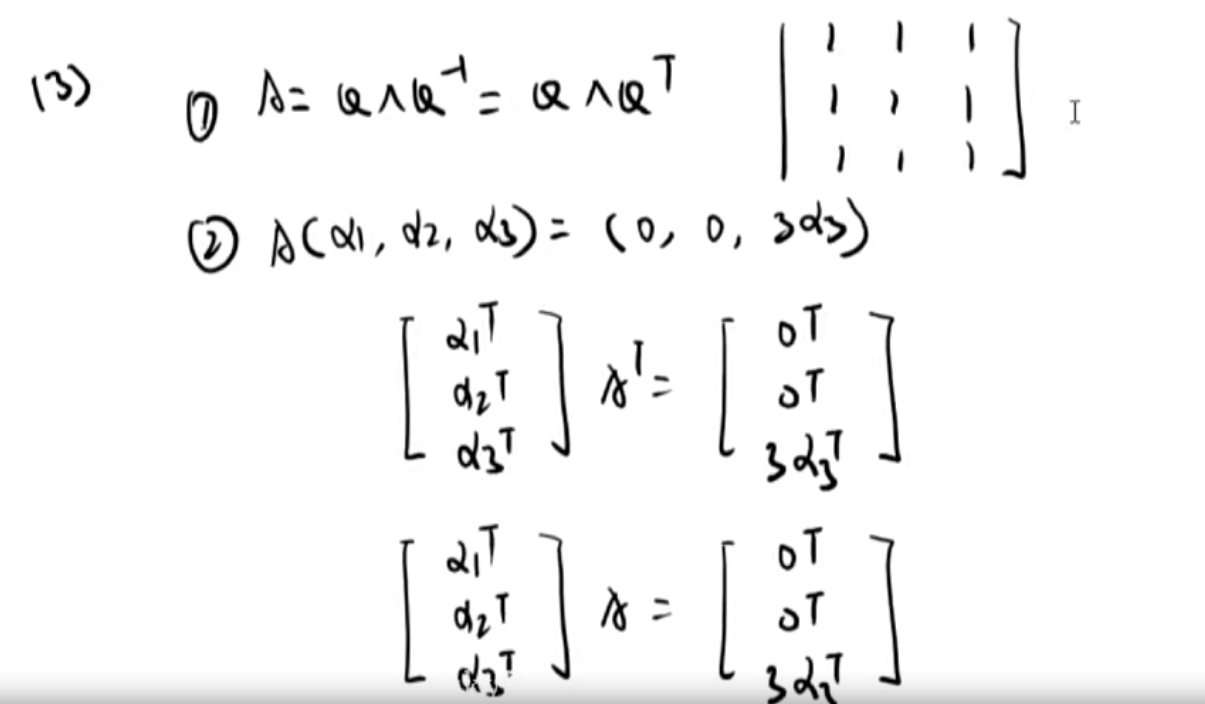 (3)
① A = QΛQ⁻¹ = QΛQᵀ
[1 1 1
1 1 1
1 1 1]
② A(α₁, α₂, α₃) = (0, 0, 3α₃)
[α₁ᵀ
α₂ᵀ
α₃ᵀ] Aᵀ = [0ᵀ
0ᵀ
3α₃ᵀ]
[α₁ᵀ
α₂ᵀ
α₃ᵀ] A = [0ᵀ
0ᵀ
3α₃ᵀ]